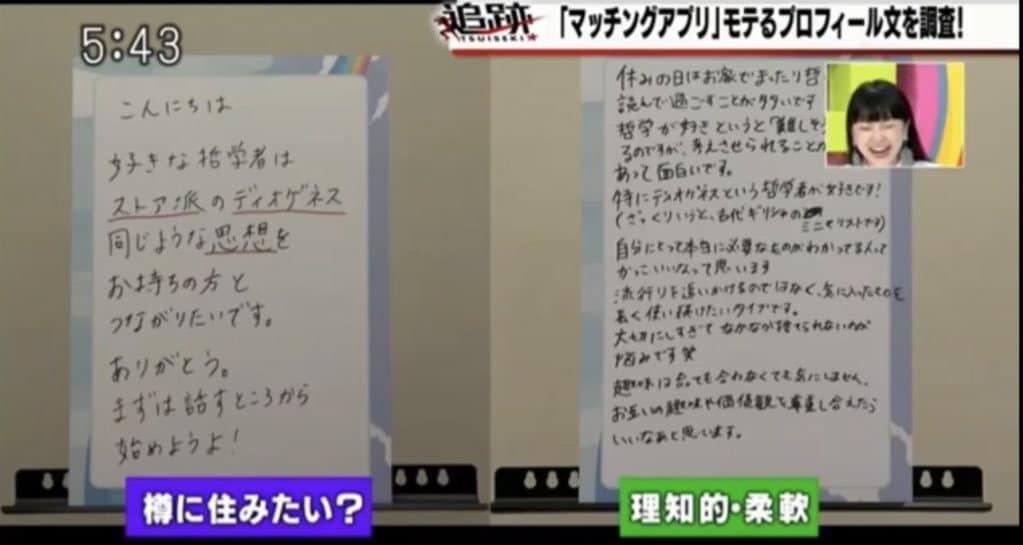 5:43
追跡
TSUISEKI
「マッチングアプリ」モテるプロフィール文を調査!
こんにちは
好きな哲学者は
ストア派のディオゲネス
同じような思想を
お持ちの方と
つながりたいです。
ありがとう。
まずは話すところから
始めようよ!
樽に住みたい?
休みの日はお家でまったり哲
読んで過ごすことが多いです
哲学が好きというと「難しそう
るのですが、考えさせられることが
あって面白いです。
特にディオゲネスという哲学者が好きです!
(ざっくりいうと、古代ギリシャの
ミニマリストです)
自分にとって本当に必要なものがわかってる人って
かっこいいなって思います
流行りを追いかけるのではなく、気に入ったものを
長く使い続けたいタイプです。
大切にしすぎてなかなか捨てられないのが
悩みです笑
趣味は合っても合わなくても気にしません。
お互いの趣味や価値観を尊重し合えたら
いいなあと思います。
理知的・柔軟